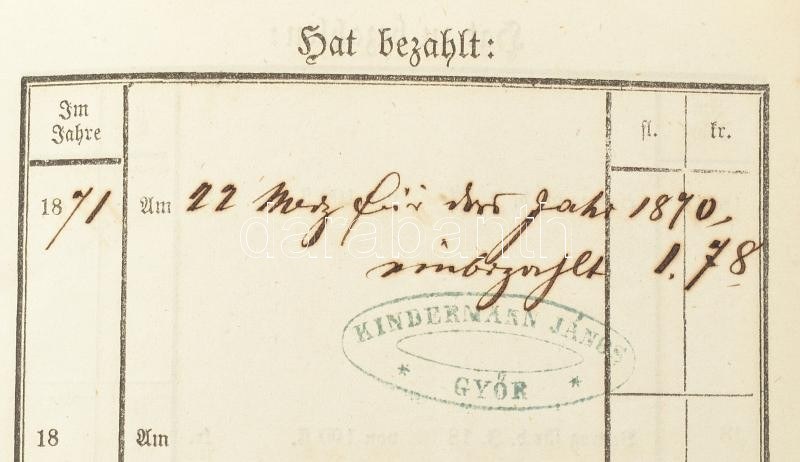 Hat bezahlt:
Im
Jahre
fl. kr.
1871 Am 22 Merz für das Jahr 1870,
einbezahlt 1.78
KINDERMANN JÁNOS
* GYŐR *
18 Am
darabanth